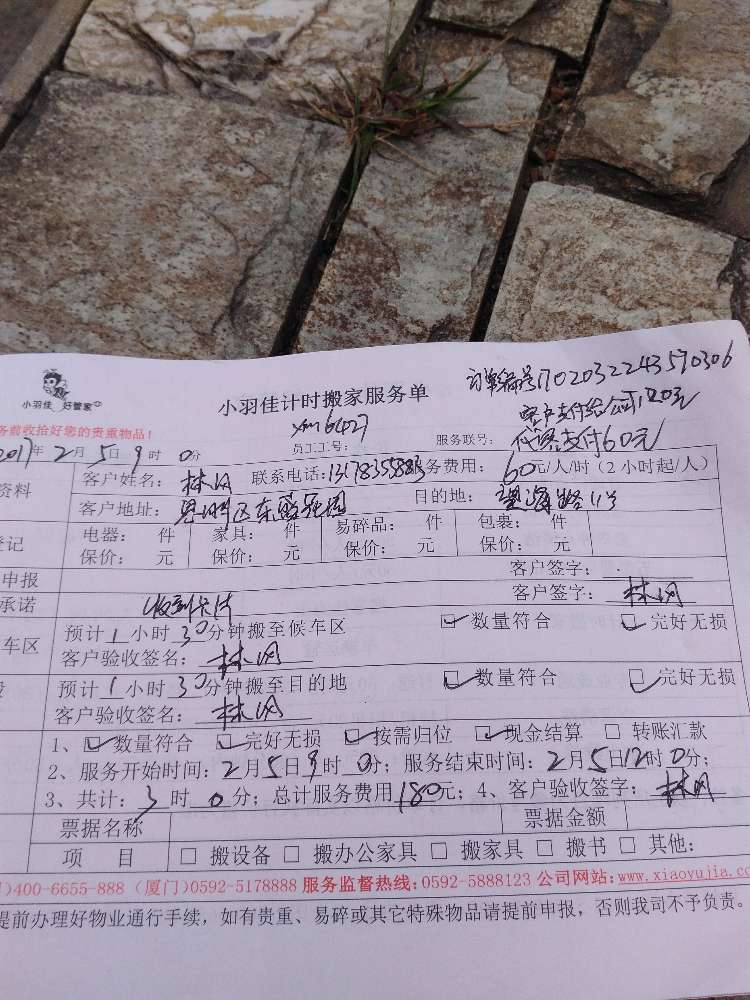 小羽佳 好管家
小羽佳计时搬家服务单
订单编号1702032243570306
务前收拾好您的贵重物品！
xm6427
员工工号：
服务联号：
客户支付给公司120元
代客支付60元
2017年2月5日9时0分
资料
客户姓名：
联系电话：
服务费用：60元/人/时（2小时起/人）
客户地址：思明区
目的地：望海路11号
登记
电器： 件 家具： 件 易碎品： 件 包裹： 件
保价： 元 保价： 元 保价： 元 保价： 元
申报
客户签字：
承诺
客户签字：
车区
预计1小时30分钟搬至候车区 ☑数量符合 ☑完好无损
客户验收签名：
预计1小时30分钟搬至目的地 ☑数量符合 ☑完好无损
客户验收签名：
1、☑数量符合 ☑完好无损 ☑按需归位 ☑现金结算 □ 转账汇款
2、服务开始时间：2月5日9时0分；服务结束时间：2月5日12时0分；
3、共计：3时0分；总计服务费用180元；4、客户验收签字：
票据名称 票据金额
项 目 □ 搬设备 □ 搬办公家具 □ 搬家具 □ 搬书 □ 其他：
)400-6655-888（厦门)0592-5178888 服务监督热线：0592-5888123 公司网站：www.xiaoyujia.com
提前办理好物业通行手续，如有贵重、易碎或其它特殊物品请提前申报，否则我司不予负责。